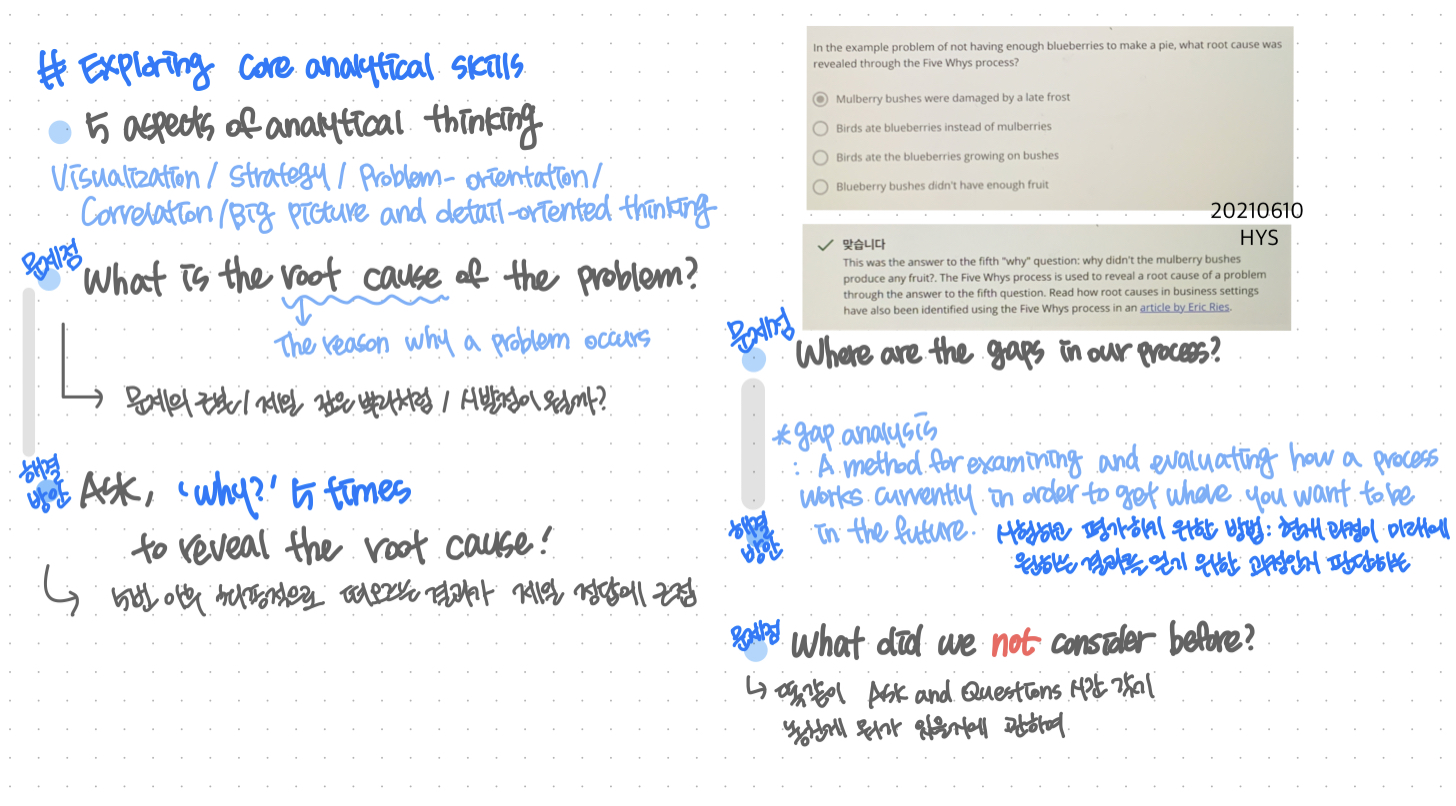 # Exploring core analytical skills
5 aspects of analytical thinking
Visualization / Strategy / Problem-orientation /
Correlation / Big picture and detail-oriented thinking
문제점
What is the root cause of the problem?
The reason why a problem occurs
문제의 근본 / 제일 깊은 뿌리처럼 / 시발점이 뭘까?
해결
방안
Ask, 'why?' 5 times
to reveal the root cause!
5번 이후 떠오르는 결과가 제일 정답에 근접
In the example problem of not having enough blueberries to make a pie, what root cause was
revealed through the Five Whys process?
Mulberry bushes were damaged by a late frost
Birds ate blueberries instead of mulberries
Birds ate the blueberries growing on bushes
Blueberry bushes didn't have enough fruit
20210610
HYS
맞습니다
This was the answer to the fifth "why" question: why didn't the mulberry bushes
produce any fruit?. The Five Whys process is used to reveal a root cause of a problem
through the answer to the fifth question. Read how root causes in business settings
have also been identified using the Five Whys process in an article by Eric Ries.
문제점
Where are the gaps in our process?
*gap analysis
: A method for examining and evaluating how a process
works currently in order to get where you want to be
in the future. 시험하고 평가하기 위한 방법: 현재 과정이 미래에
원하는 결과를 얻기 위한 과정인지 판단하는
해결
방안
문제점
What did we not consider before?
똑같이 Ask and Questions 시간 갖기
놓친게 뭐가 있을지에 관하여